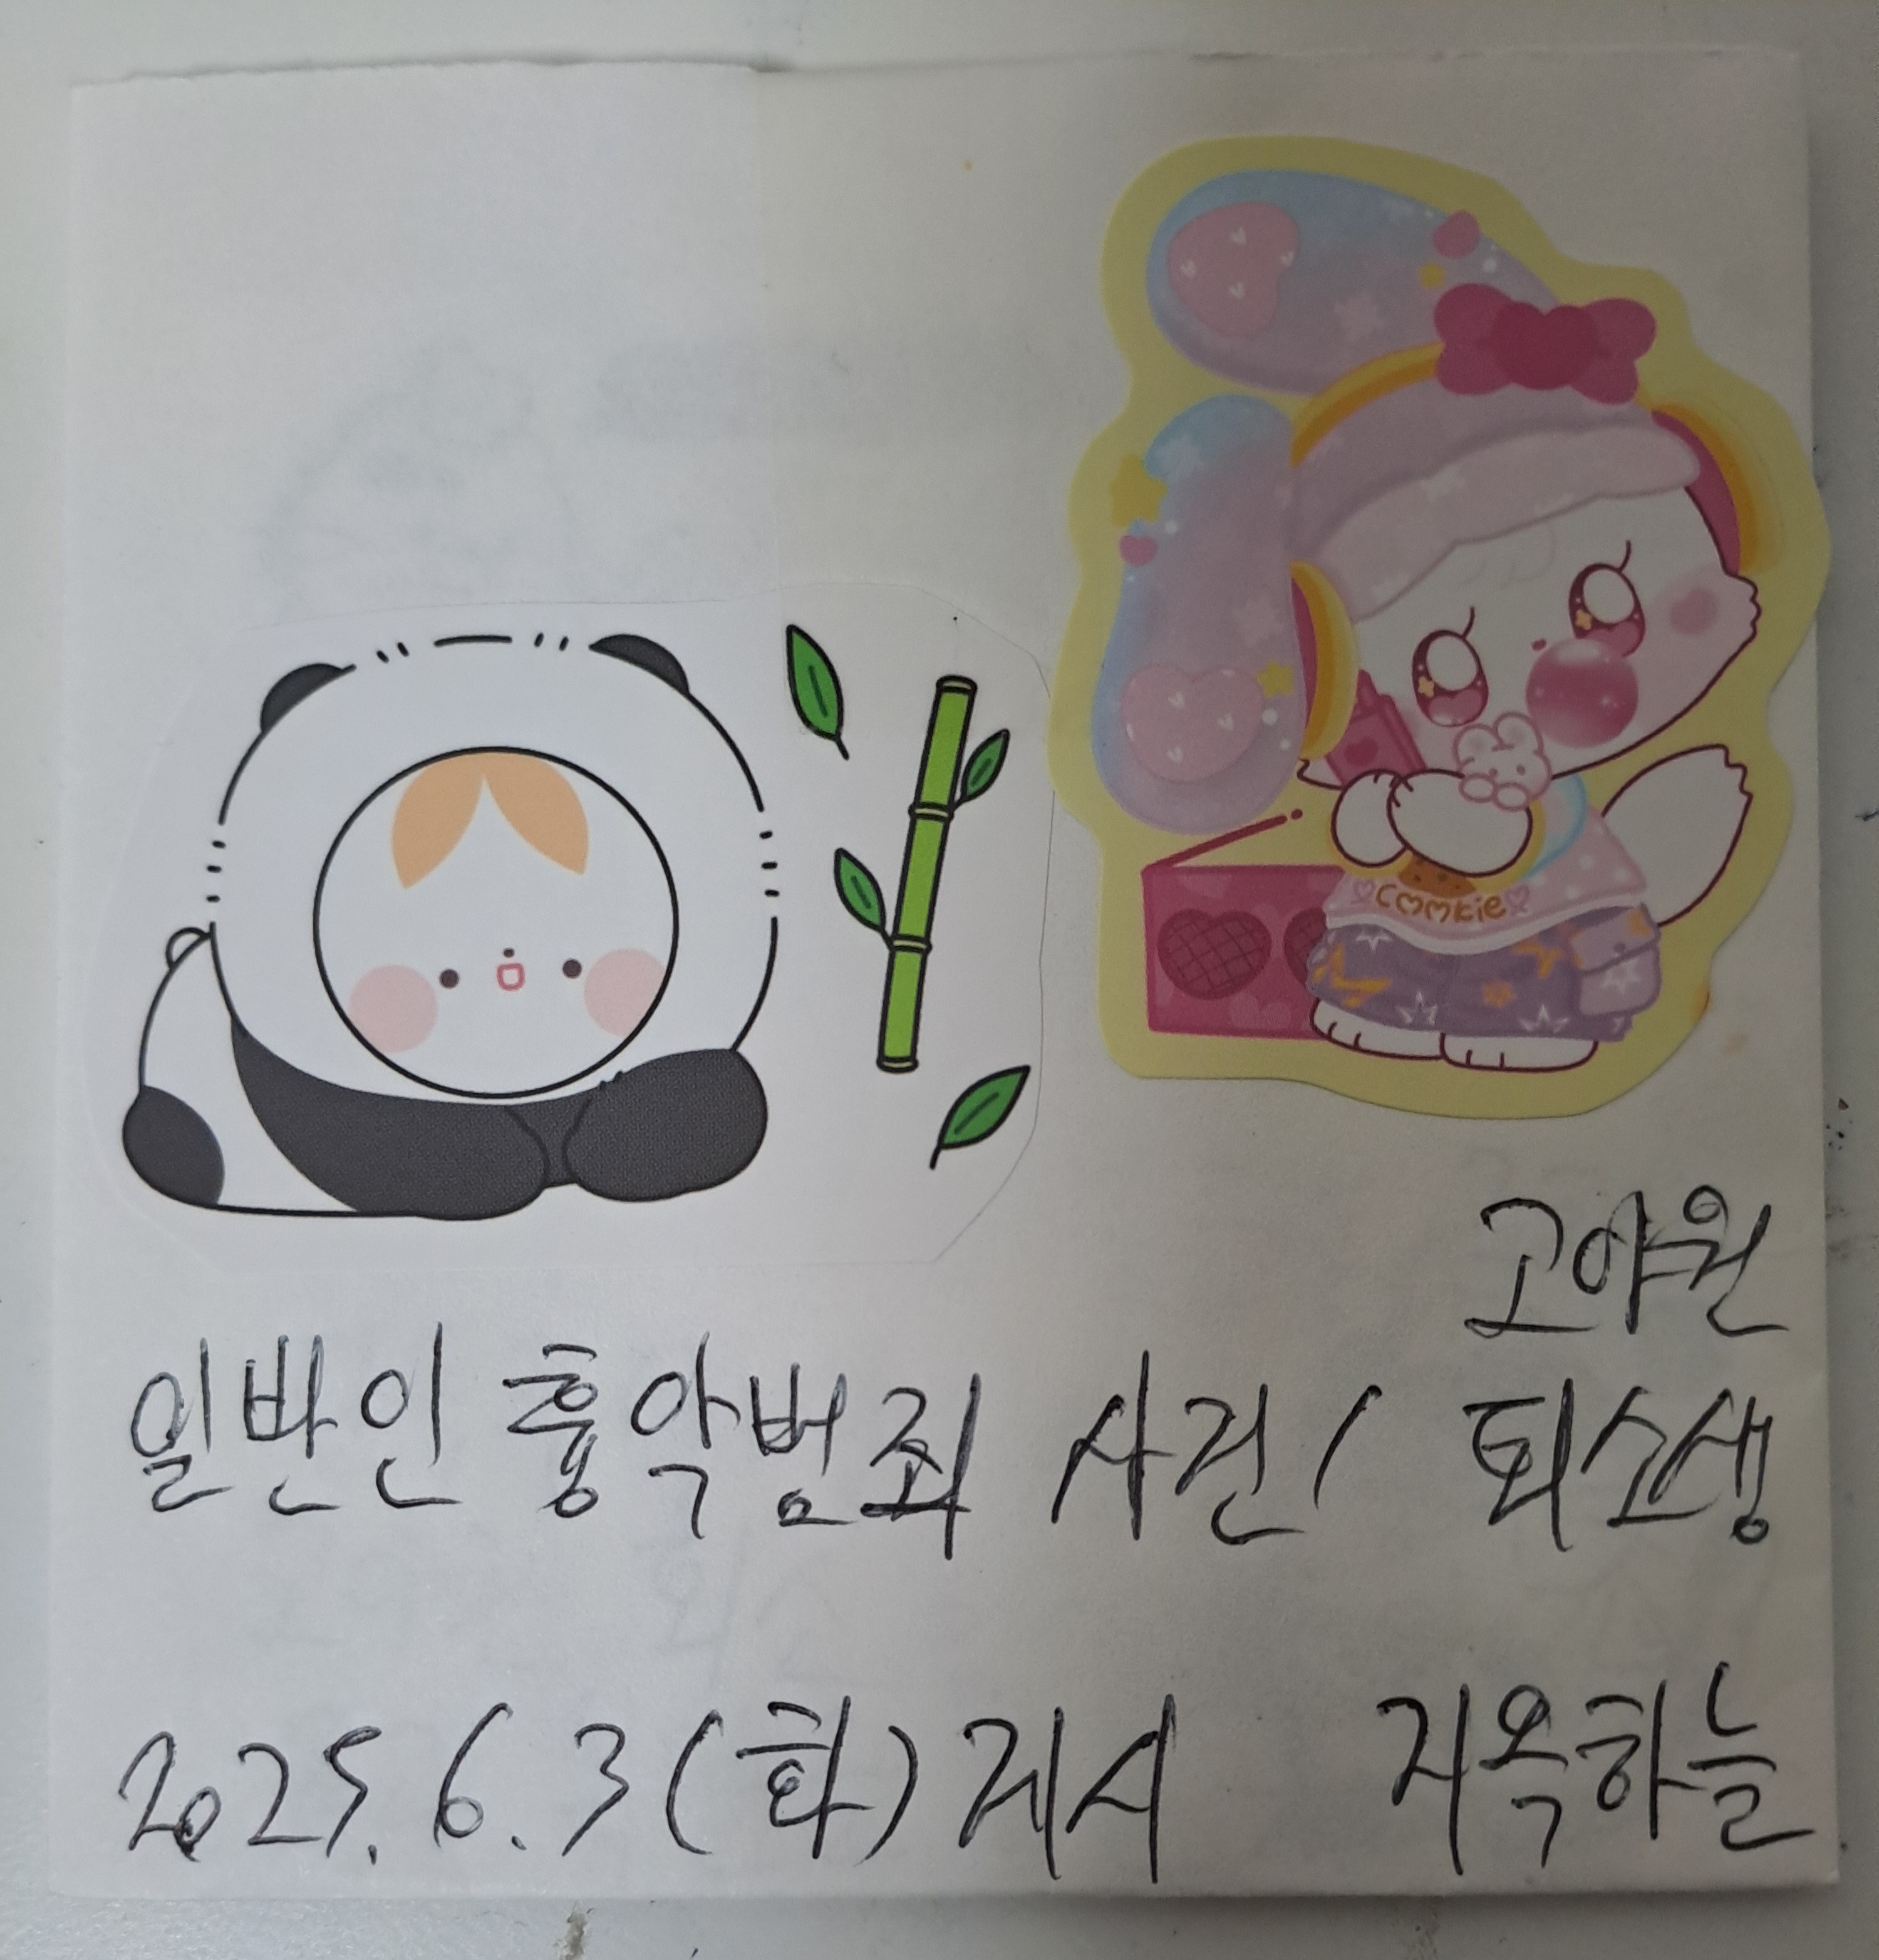 cookie
고야원
일반인 흉악범죄 사건/ 퇴소생
2025.6.3(화)게시 지옥하늘